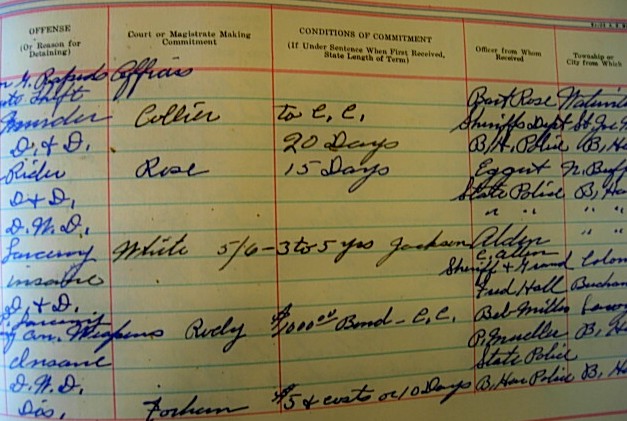 OFFENSE (Or Reason for Detaining) Court or Magistrate Making Commitment CONDITIONS OF COMMITMENT (If Under Sentence When First Received, State Length of Term) Officer from Whom Received Township or City from Which
Rapids Officers
Theft Bart Rose
Murder Collier to C. C. Sheriffs Dept St. Joe
D. & D. 20 Days B. H. Police B. Ha
Rider Rose 15 Days Eggert N. Buff
D & D. State Police B. Ha
D. W. D. " " " "
Larceny White 5/6 - 3 to 5 yrs Jackson Alden " "
insane C. Allen
Sheriff & Grand Colom
D. & D. Fred Hall Buchan
Weapons Rody $1000.00 Bond - C. C. Bob Miller
Insane P. Mueller B. H
D. W. D. State Police
Dis. $5 & costs or 10 Days B. Har Police B. Ha